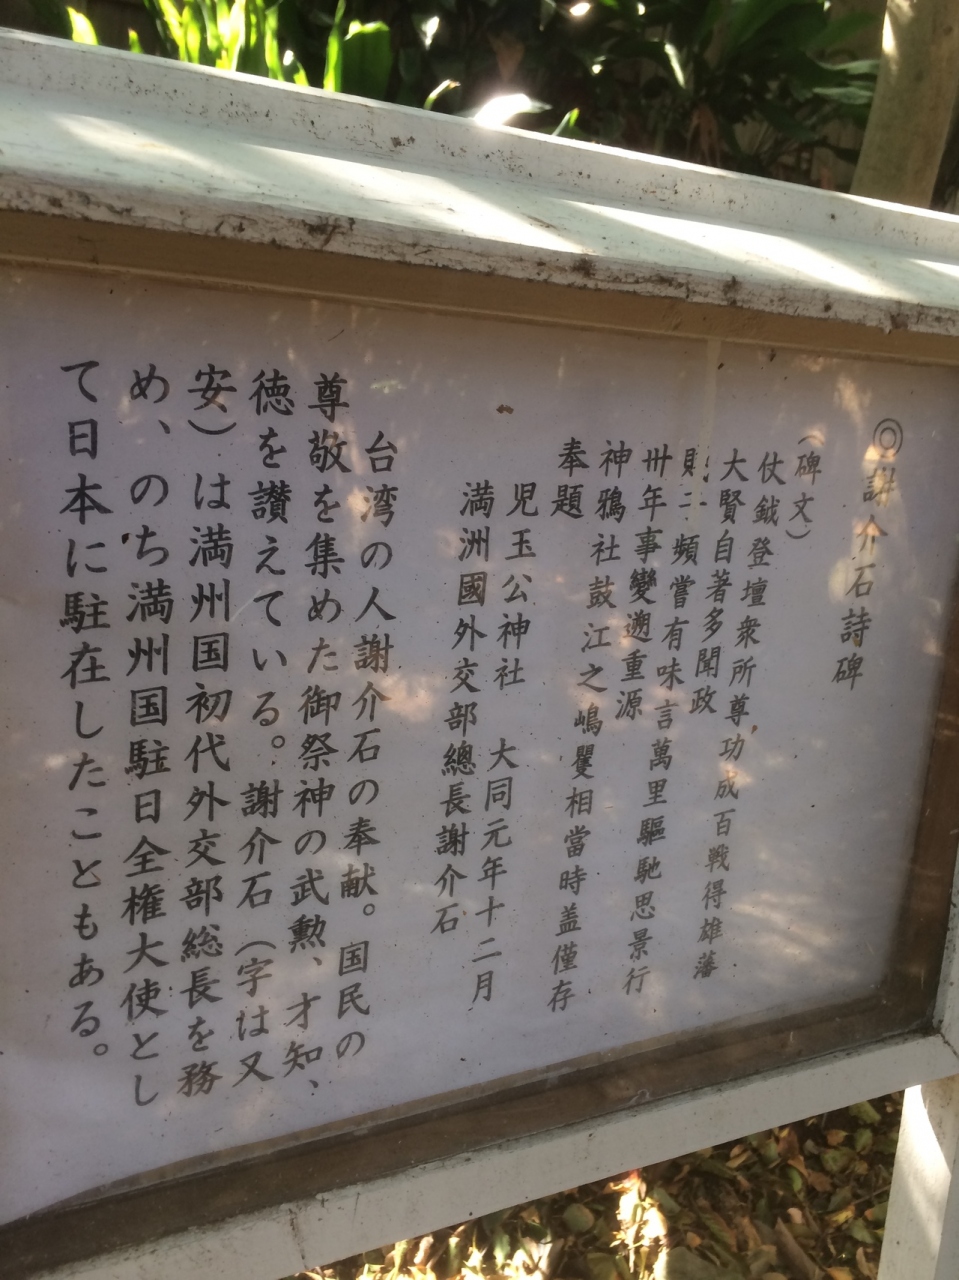 ◎謝介石詩碑
（碑文）
仗鉞登壇衆所尊功成百戦得雄藩
大賢自著多聞政
頻嘗有味言萬里驅馳思景行
卅年事變遡重源
神鴉社鼓江之嶋矍相當時盖僅存
奉題
児玉公神社　大同元年十二月
満洲國外交部總長謝介石
台湾の人謝介石の奉献。国民の
尊敬を集めた御祭神の武勲、才知、
徳を讃えている。謝介石（字は又
安）は満州国初代外交部総長を務
め、のち満州国駐日全権大使とし
て日本に駐在したこともある。